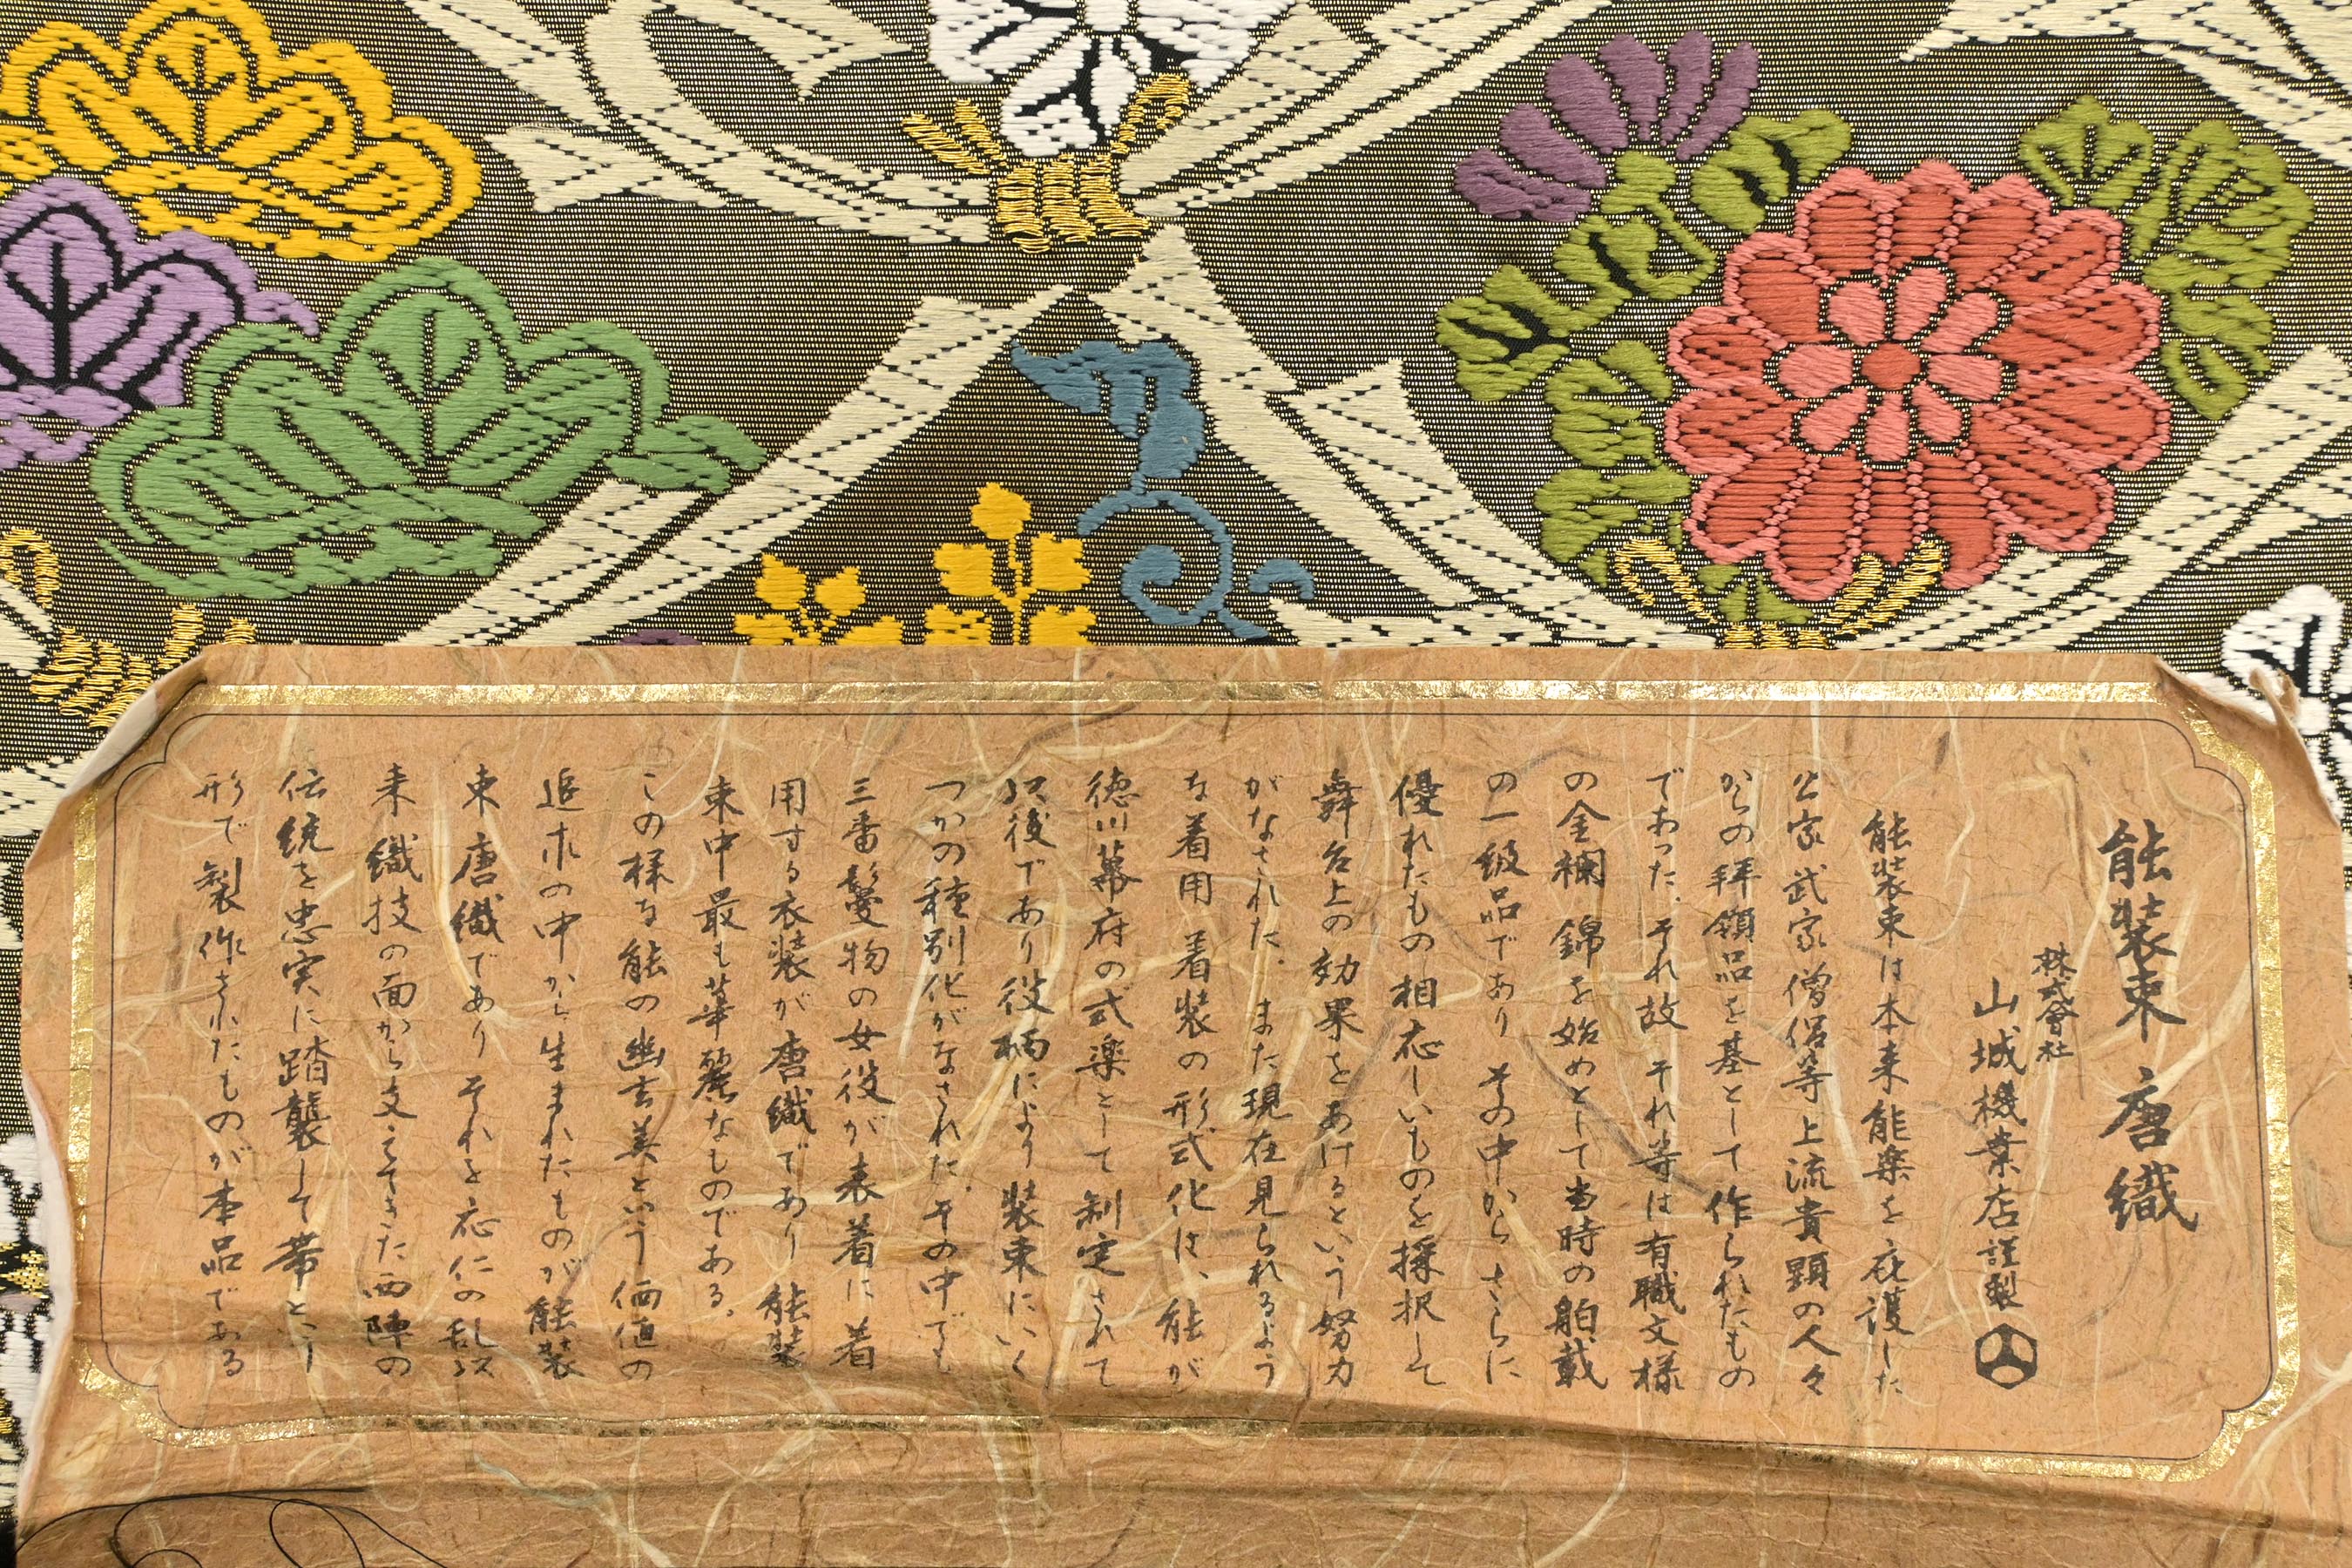 能装束 唐織
株式会社
山城機業店謹製
能装束は本来能楽を庇護した
公家武家僧侶等上流貴顕の人々
からの拝領品を基として作られたもの
であった．それ故 それ等は有職文様
の金襴 錦を始めとして当時の舶載
の一級品であり その中から さらに
優れたもの相応しいものを採択して
舞台上の効果をあげるという努力
がなされた．また現在見られるよう
な着用 着装の形式化は、能が
徳川幕府の式楽として制定されて
以後であり役柄により装束にいく
つかの種別化がなされた．その中でも
三番鬘物の女役が表着に着
用する衣装が唐織であり 能装
束中最も華麗なものである．
この様な能の幽玄美という価値の
追求の中から生まれたものが能装
束唐織であり それを応仁の乱以
来織技の面から支えてきた西陣の
伝統を忠実に踏襲して帯という
形で製作されたものが本品である